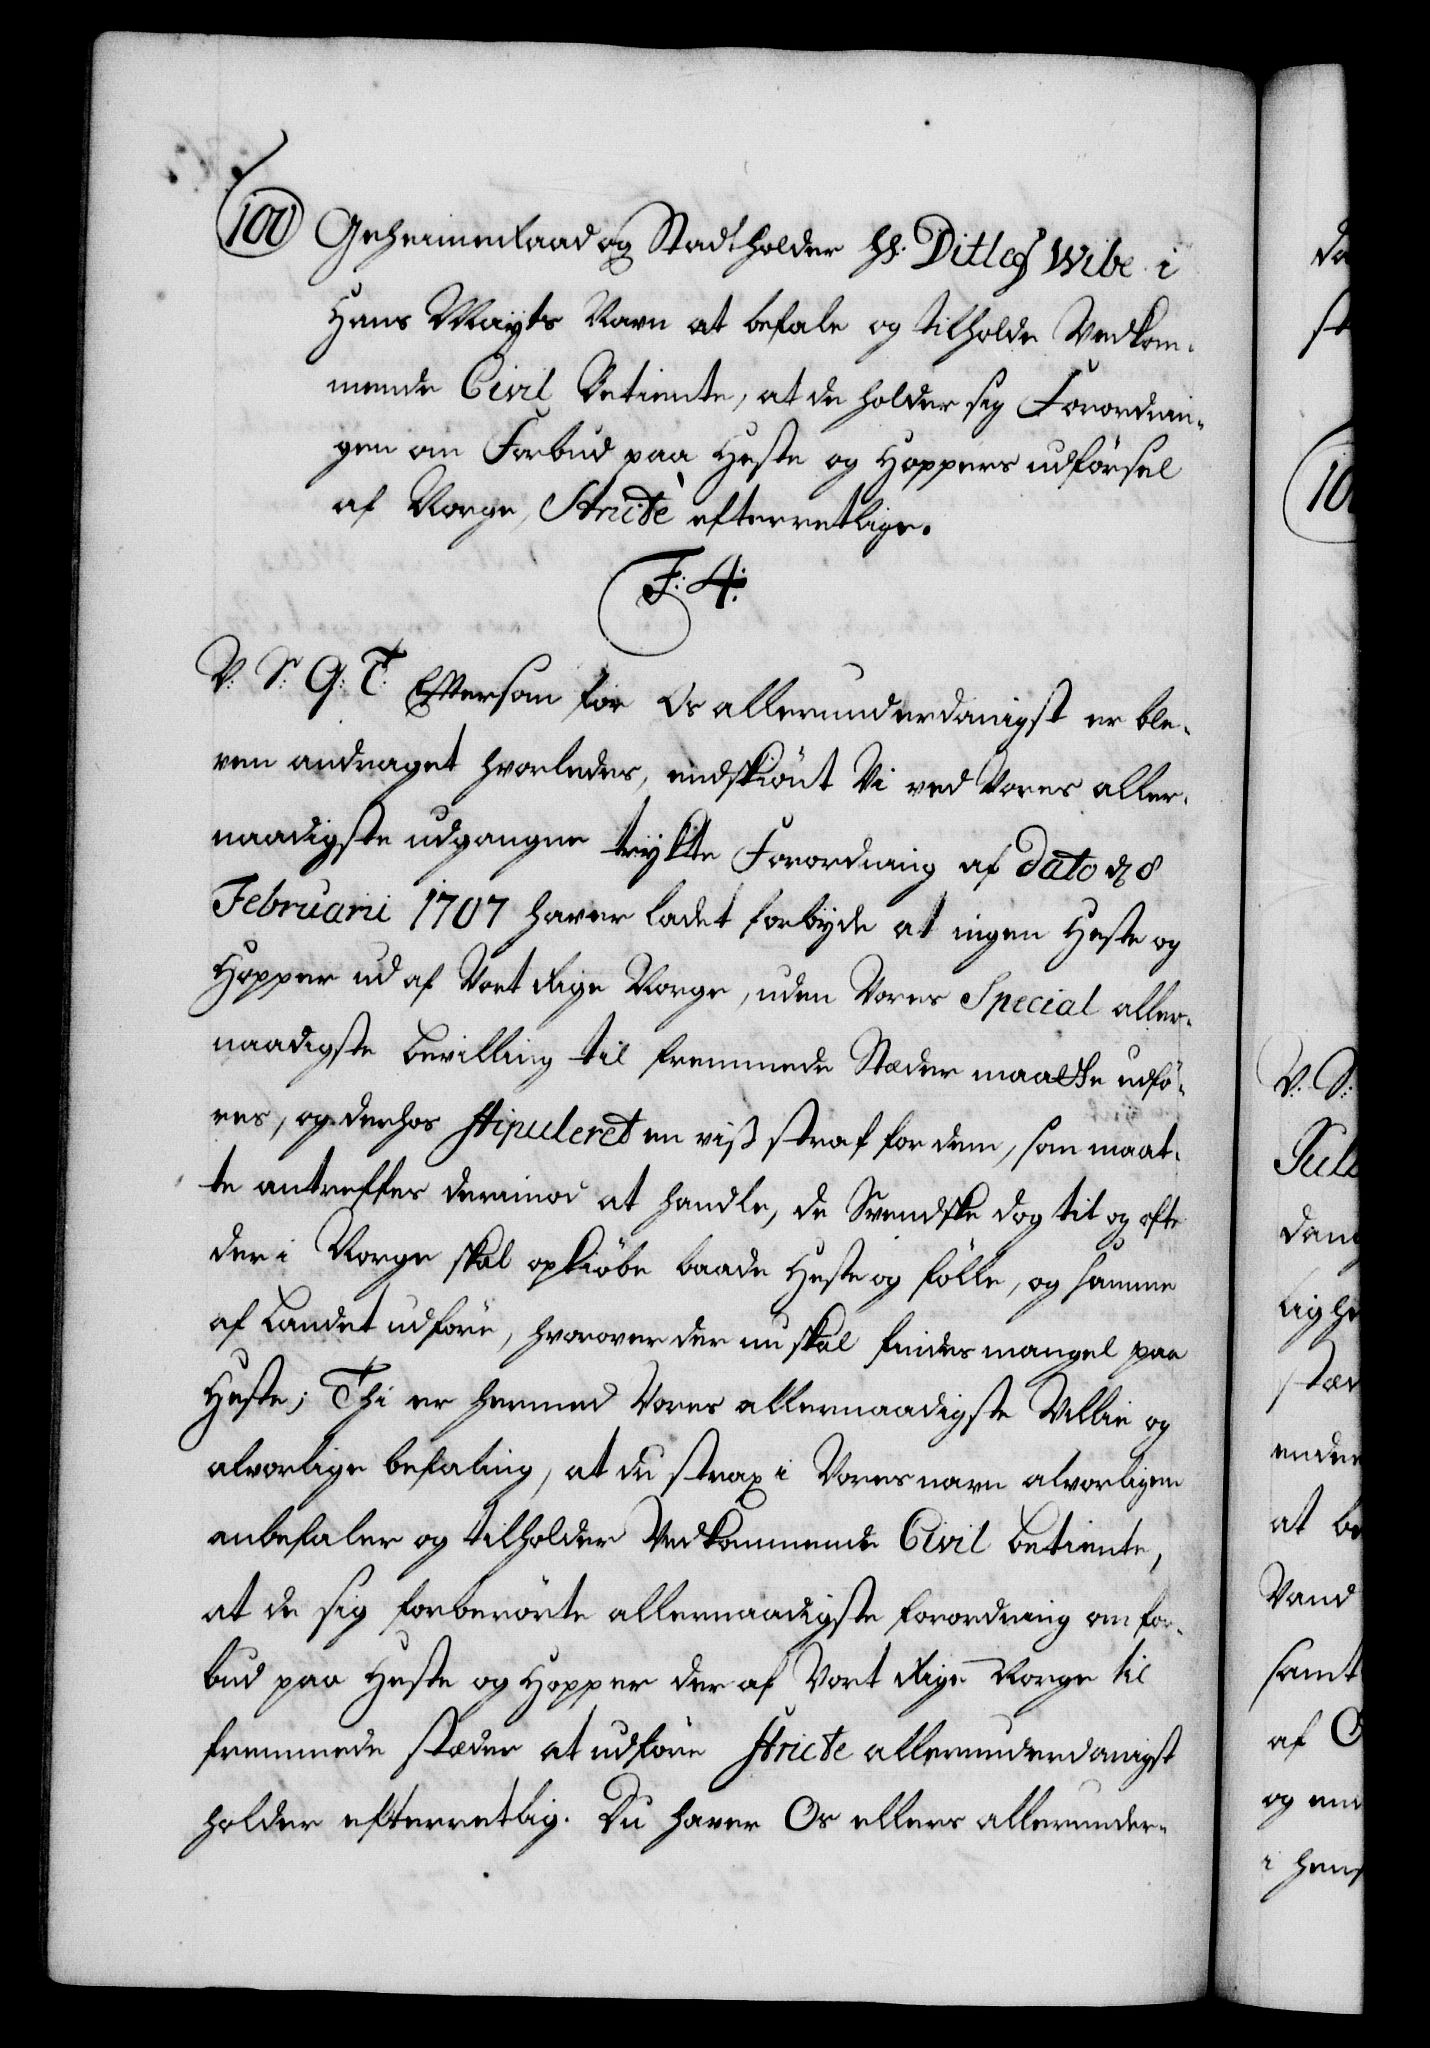 100 Geheimeraad og Stadtholder Hr. Ditlef Wibe i
Hans Mayts Navn at befale og tilholde Vedkom-
mende Civil Betiente, at de holder sig Forordnin-
gen om Forbud paa Heste og Hoppers udförsel
af Norge, Strictè efterretlige.
F: 4:
V: S: G: T. Eftersom for Os allerunderdanigst er ble-
ven andraget hvorledes, endskiönt Vi ved Vores aller-
naadigste udgangne trykte Forordning af dato d 8
Februarii 1707 haver ladet forbyde at ingen Heste og
Hopper ud af Vort Rige Norge, uden Vores Special aller-
naadigste bevilling til fremmede Stæder maatte udfö-
res, og derhos stipuleret en viss straf for dem, som maat-
te antreffes derimod at handle, de Svendske dog tit og ofte
der i Norge skal opkiöbe baade Heste og fölle, og samme
af Landet udföre, hvorover der nu skal findes mangel paa
Heste; Thi er hermed Vores allernaadigste Villie og
alvorlige befaling, at du strax i Vores navn alvorligen
anbefaler og tilholder Vedkommende Civil betiente,
at de sig forberörte allernaadigste forordning om for-
bud paa Heste og Hopper der af Vort Rige Norge til
fremmede stæder at udföre stricte allerunderdanigst
holder efterretlig. Du haver Os ellers allerunder-